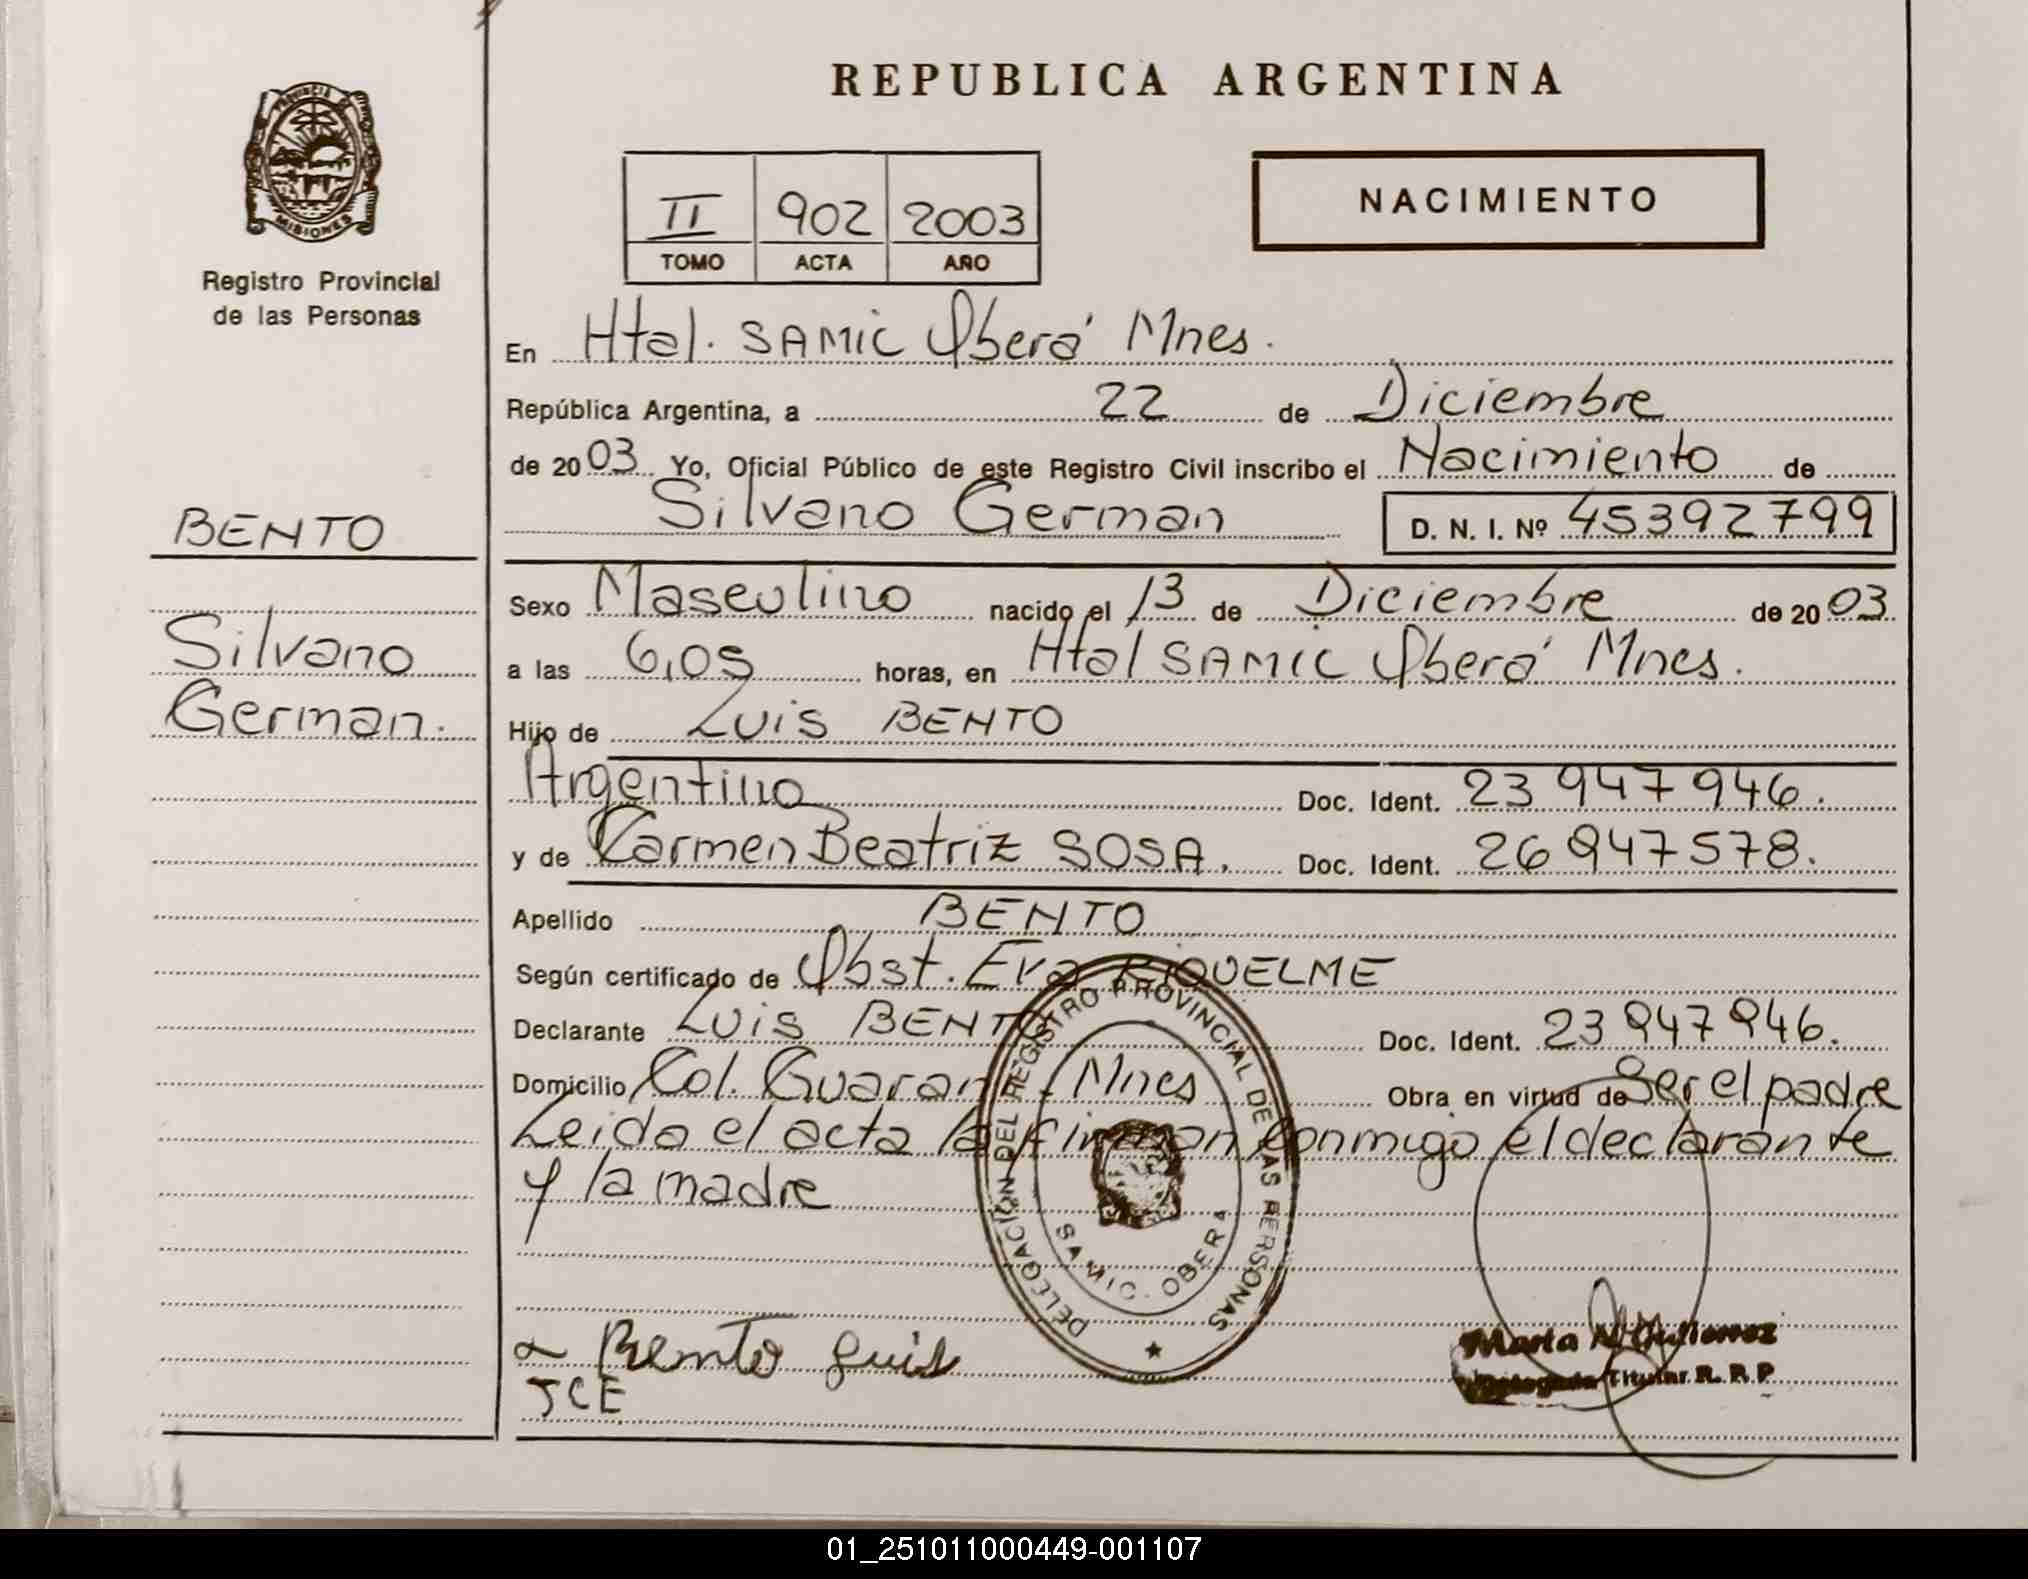 REPUBLICA ARGENTINA
PROVINCIA DE
MISIONES
Registro Provincial
de las Personas
II 902 2003
TOMO ACTA AÑO
NACIMIENTO
En Htal. SAMIC Oberá Mnes.
República Argentina, a 22 de Diciembre
de 2003 Yo, Oficial Público de este Registro Civil inscribo el Nacimiento de
Silvano German D. N. I. Nº 45392799
BENTO
Silvano
German.
Sexo Masculino nacido el 13 de Diciembre de 2003
a las 6,05 horas, en Htal SAMIC Oberá Mnes.
Hijo de Luis BENTO
Argentino Doc. Ident. 23 947 946.
y de Carmen Beatriz SOSA. Doc. Ident. 26 947 578.
Apellido BENTO
Según certificado de Obst. Eva RIQUELME
Declarante Luis BENTO Doc. Ident. 23 947 946.
Domicilio Col. Guaraní - Mnes Obra en virtud de Ser el padre
Leida el acta la firman conmigo el declarante
y la madre
DELEGACION DEL REGISTRO PROVINCIAL DE LAS PERSONAS
SAMIC - OBERA
Bento Luis
JCE
Marta N. Gutierrez
Delegada Titular R. P. P.
01_251011000449-001107